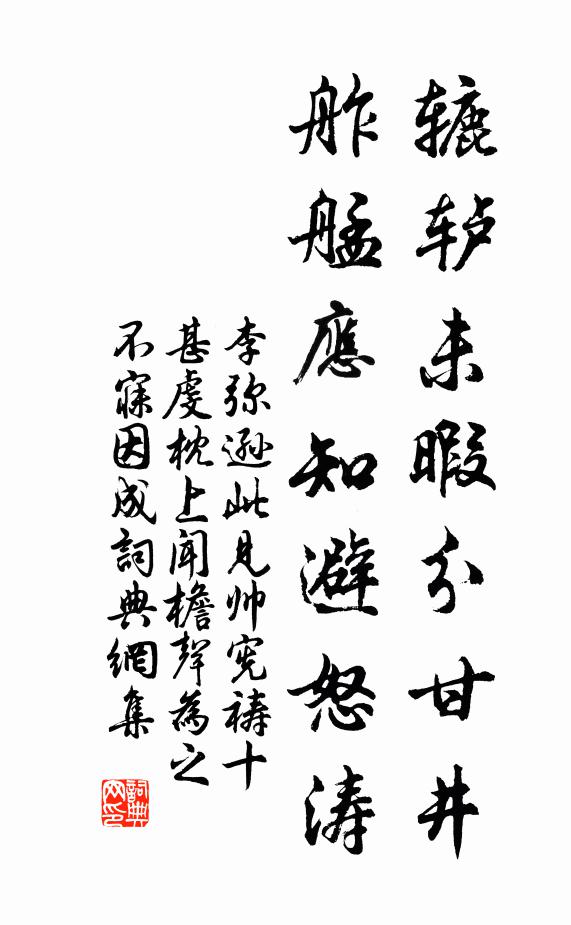 辘轳未暇分甘井
舴艋應知避怒涛
李弥逊此见帅宪祷十
甚虔枕上闻檐聲為之
不寐因成詞典網集
詞典网印